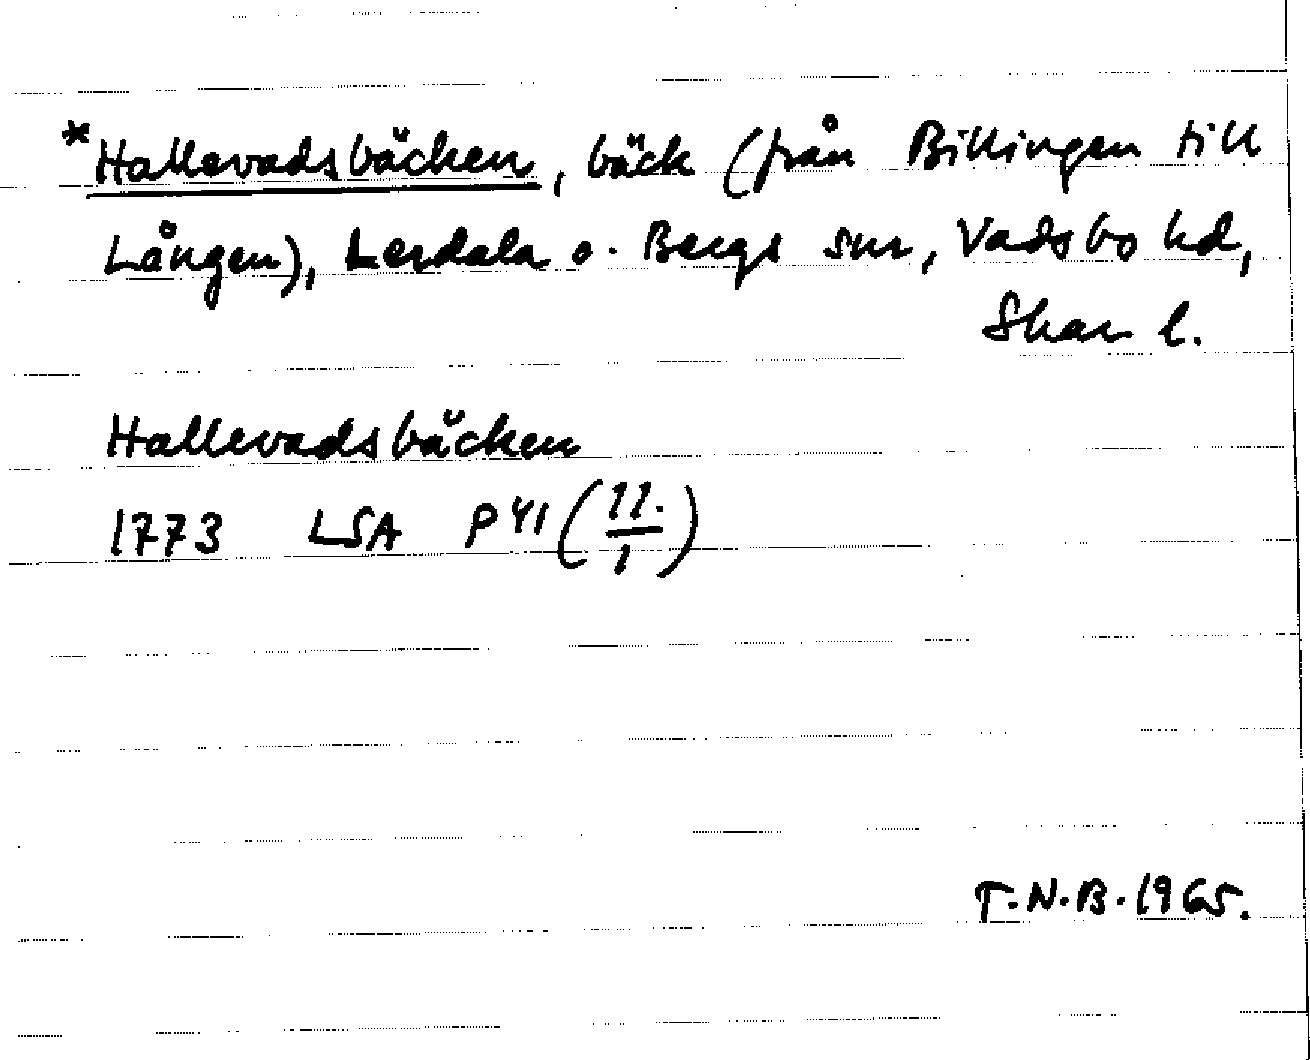 *Hallevadsbäcken, bäck (från Billingen till
Lången), Lerdala o. Bergs snr, Vadsbo hd,
Skar l.
Hallevadsbäcken
1773 LSA P41 (11./1)
T.N.B. 1965.